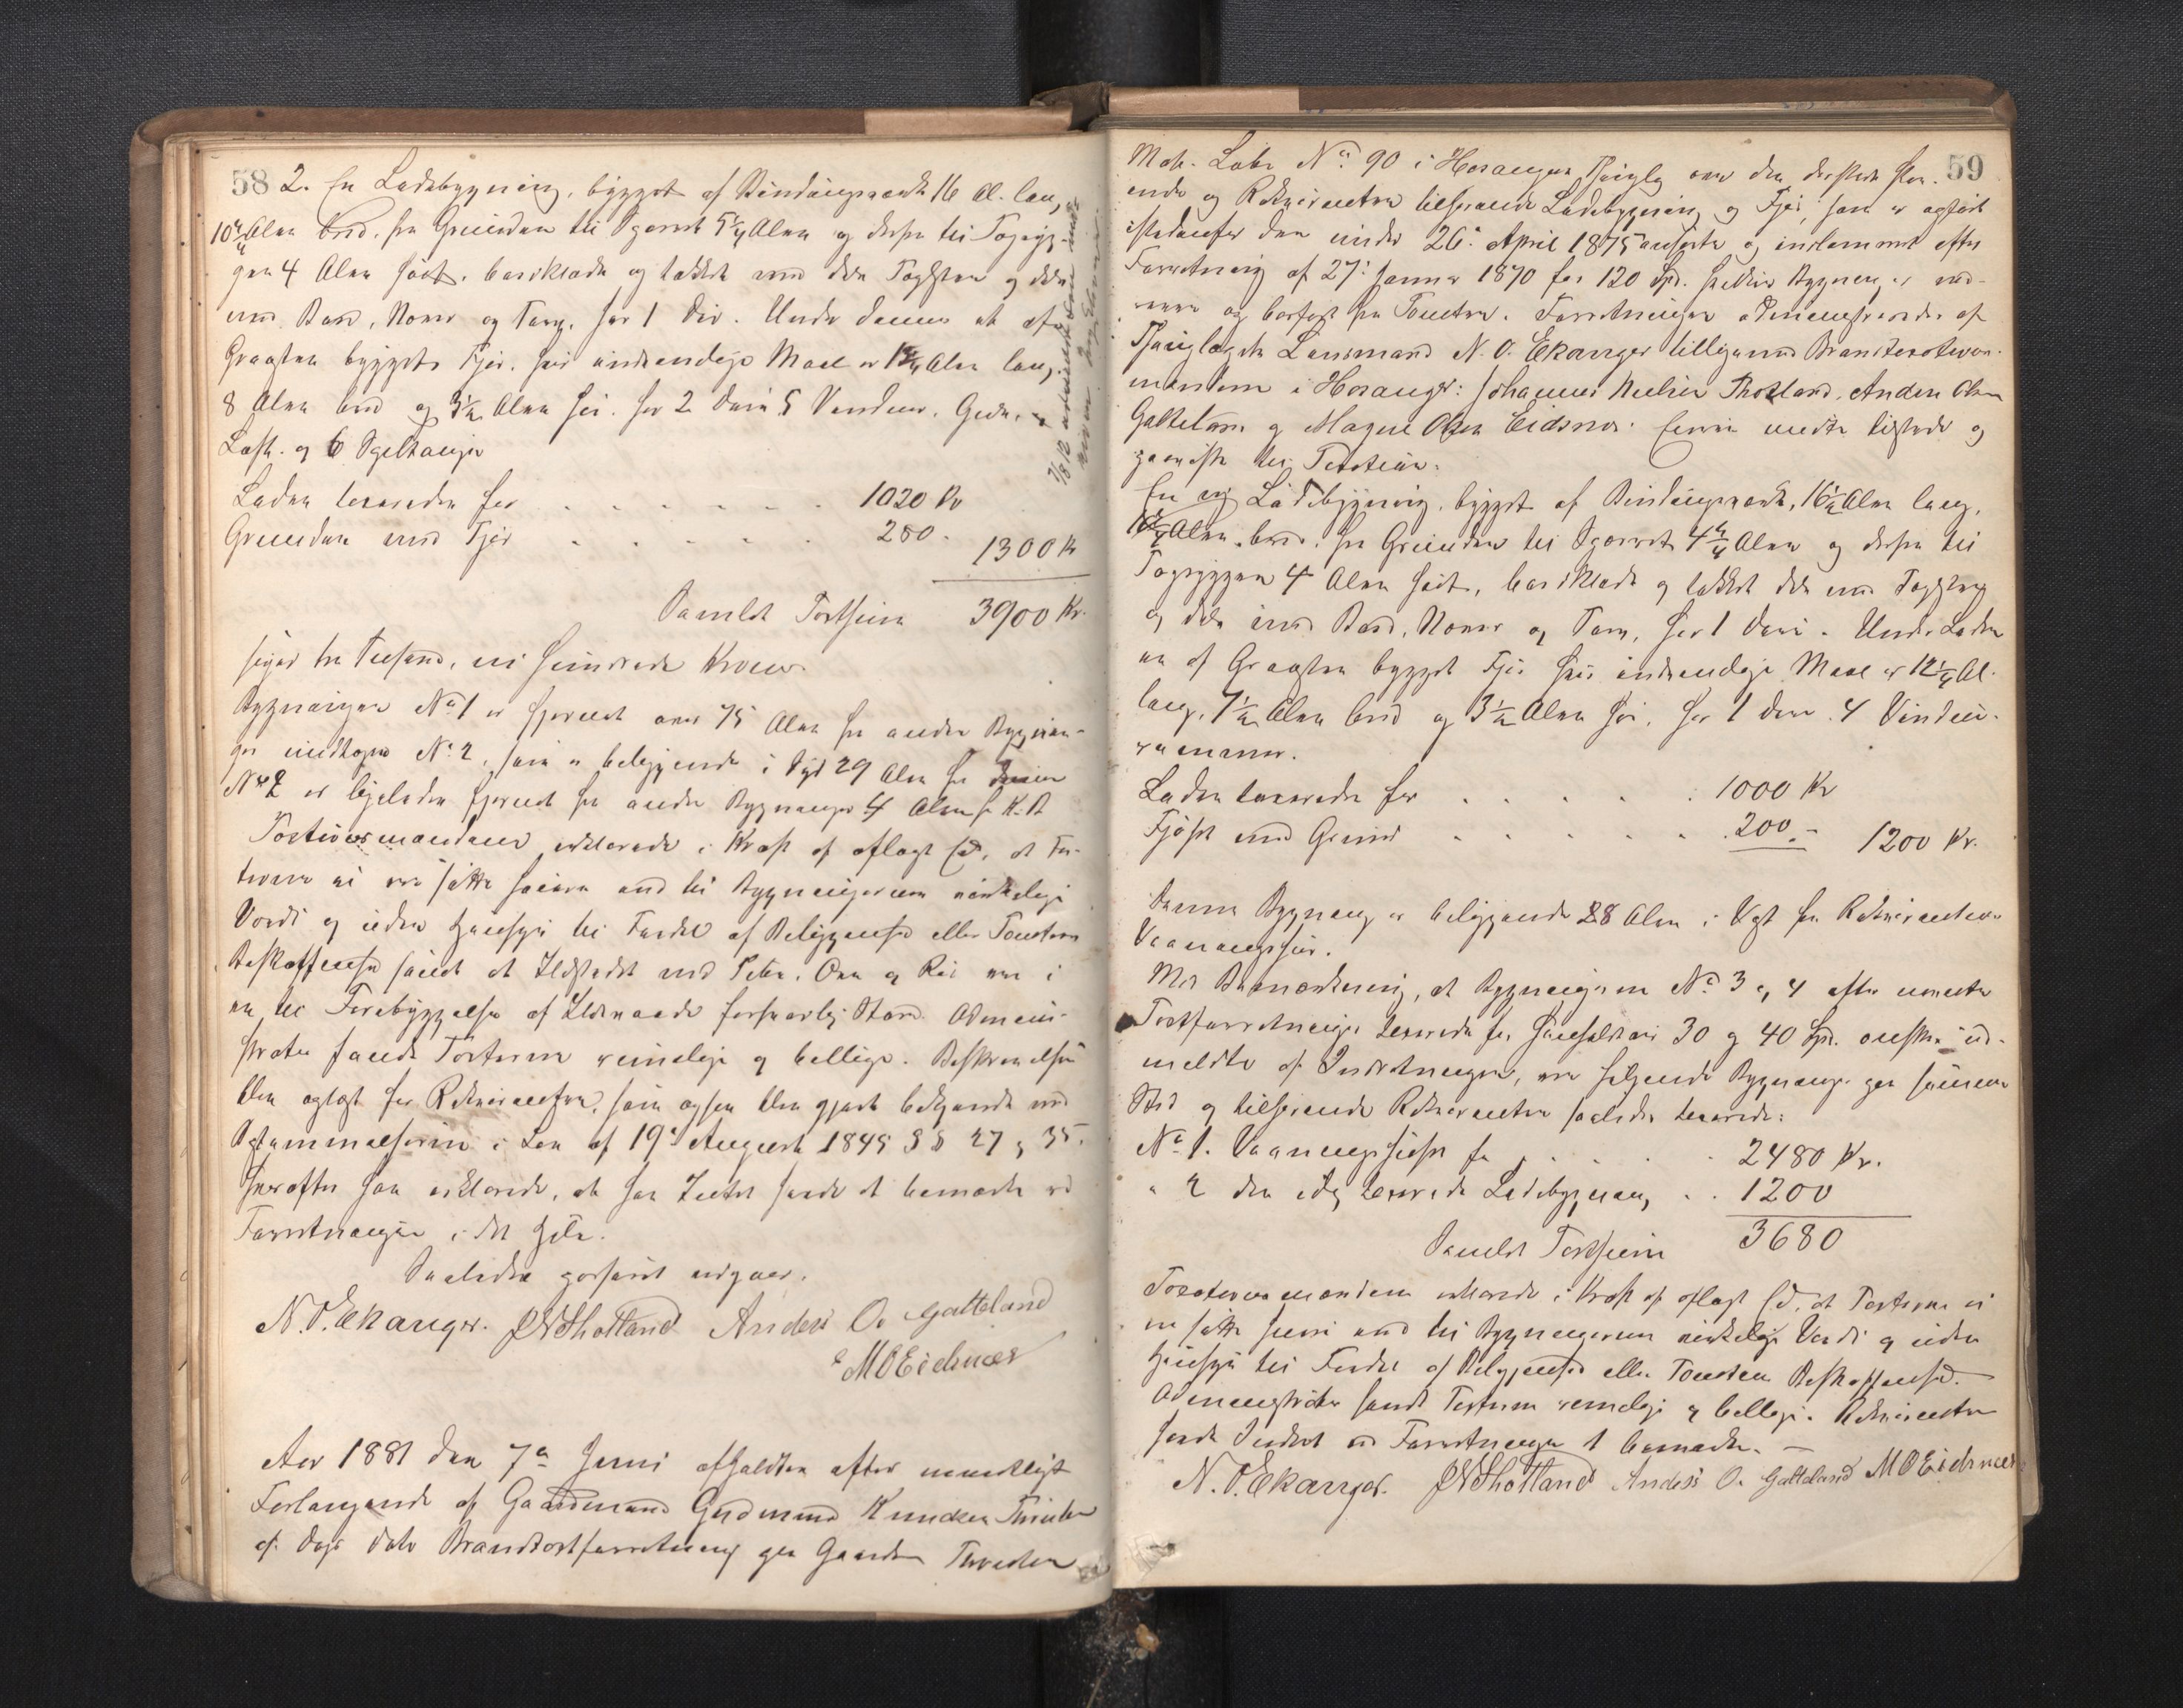 58 2. En Ladebygning, bygget af Bindingsværk 16 Al. lang,
10 2/4 Alen bred, fra Grunden til Sparret 5 1/4 Alen og derfra til Tagryg-
gen 4 Alen høit, bordklædt og tækket med dels Tagsten og dels
med Bord, Næver og Torv, har 1 Dør. Under denne et af
Graasten bygget Fjøs, hvis indvendige Maal er Alen lang,
8 Alen bred og 3 1/2 Alen høi, har 2 Døre 5 Vinduer,
Loft og 6
Laden taxeredes for . . . . . . 1020 Kr
Grunden med Fjøs . . . . . 280 . 1300 Kr
Samlet Taxtsum 3900 Kr.
siger tre Tusend, ni Hundrede Kroner.
Bygningen No 1 er fjernet over 75 Alen fra andre Bygnin-
ger undtagen No 2, som er beliggende i Syd 29 Alen fra denne
No 2 er ligeledes fjernet fra andre Bygninger 4 Alen
Taxtationsmændene erklærede i Kraft af aflagt Ed, at Tax-
terne ei ere satte høiere end til Bygningernes virkelige
Værdi og uden Hensyn til Fordel af Beliggenhed eller Tomtens
Beskaffenhed samt at Ildstedet med Pibe, Ovn og Rør var i
en til Forebyggelse af Ildsvaade forsvarlig Stand. Admini-
strator fandt Taxterne rimelige og billige. Beskrivelsen
blev oplæst for Rekvirenten, som ogsaa blev gjort bekjendt med
Bestemmelserne i Lov af 19de August 1845 §§ 27 og 35.
hvorefter han erklærede, at han Intet havde at bemærke ved
Forretningen i det Hele.
Saaledes passeret udgaar.
N. O. Ekanger. Anders O. Galteland
MOEidsnæs
Aar 1881 den 7de Juni afholdtes efter mundtligt
Forlangende af Gaardmand Gudmund Knudsen
af Dags Dato Brandtaxtforretning paa Gaarden
59
Matr. Løbe No 90 i Hosanger Thinglag over den dersteds staa-
ende og Rekvirenten tilhørende Ladebygning og Fjøs, som er opført
istedenfor den under 26. April 1875 anførte og indlemmet efter
Forretning af 27. Januar 1870 for 120 Spd. hvilken Bygning er ned-
reven og bortført fra Tomten. Forretningen administreredes af
Thinglagets Lensmand N. O. Ekanger tilligemed Brandtaxations-
mændene i Hosanger: Johannes Nielsen Anders Olsen
Galteland og Magne Olsen Eidsnæs.
En ny Ladebygning, bygget af Bindingsværk, 16 1/2 Alen lang,
Alen bred, fra Grunden til Sparret 4 3/4 Alen og derfra til
Tagryggen 4 Alen høit, bordklædt og tækket dels med Tagsten
og dels med Bord, Næver og Torv, har 1 Dør. Under Laden
en af Graasten bygget Fjøs hvis indvendige Maal er 12 1/4 Al.
lang, 7 1/2 Alen bred og 3 1/2 Alen høi, har 1 Dør. 4 Vindus-
rammer.
Laden taxeredes for . . . . . . 1000 Kr
Fjøset med Grund . . . . . . 200 . - 1200 Kr.
Denne Bygning er beliggende 28 Alen i Vest fra Rekvirentens
Vaaningshus.
Med Bemærkning, at Bygningerne No 3 og 4 efter nævnte
Taxtforretninger taxerede for henholdsvis 30 og 40 Spd. ønskes ud-
meldte af Indretningen, ere følgende Bygninger paa samme
Sted og tilhørende Rekvirenten saaledes taxerede:
No 1. Vaaningshuset for . . . . 2480 Kr.
" 2 den idag taxerede Ladebygning . . 1200
Samlet Taxtsum 3680
Taxationsmændene erklærede i Kraft af aflagt Ed, at Taxterne ei
ere satte høiere end til Bygningernes virkelige Værdi og uden
Hensyn til Fordel af Beliggenhed eller Tomtens Beskaffenhed.
Administrator fandt Taxterne rimelige og billige. Rekvirenten
havde Intet ved Forretningen at bemærke. —
N. O. Ekanger. Anders O. Galteland MOEidsnæs